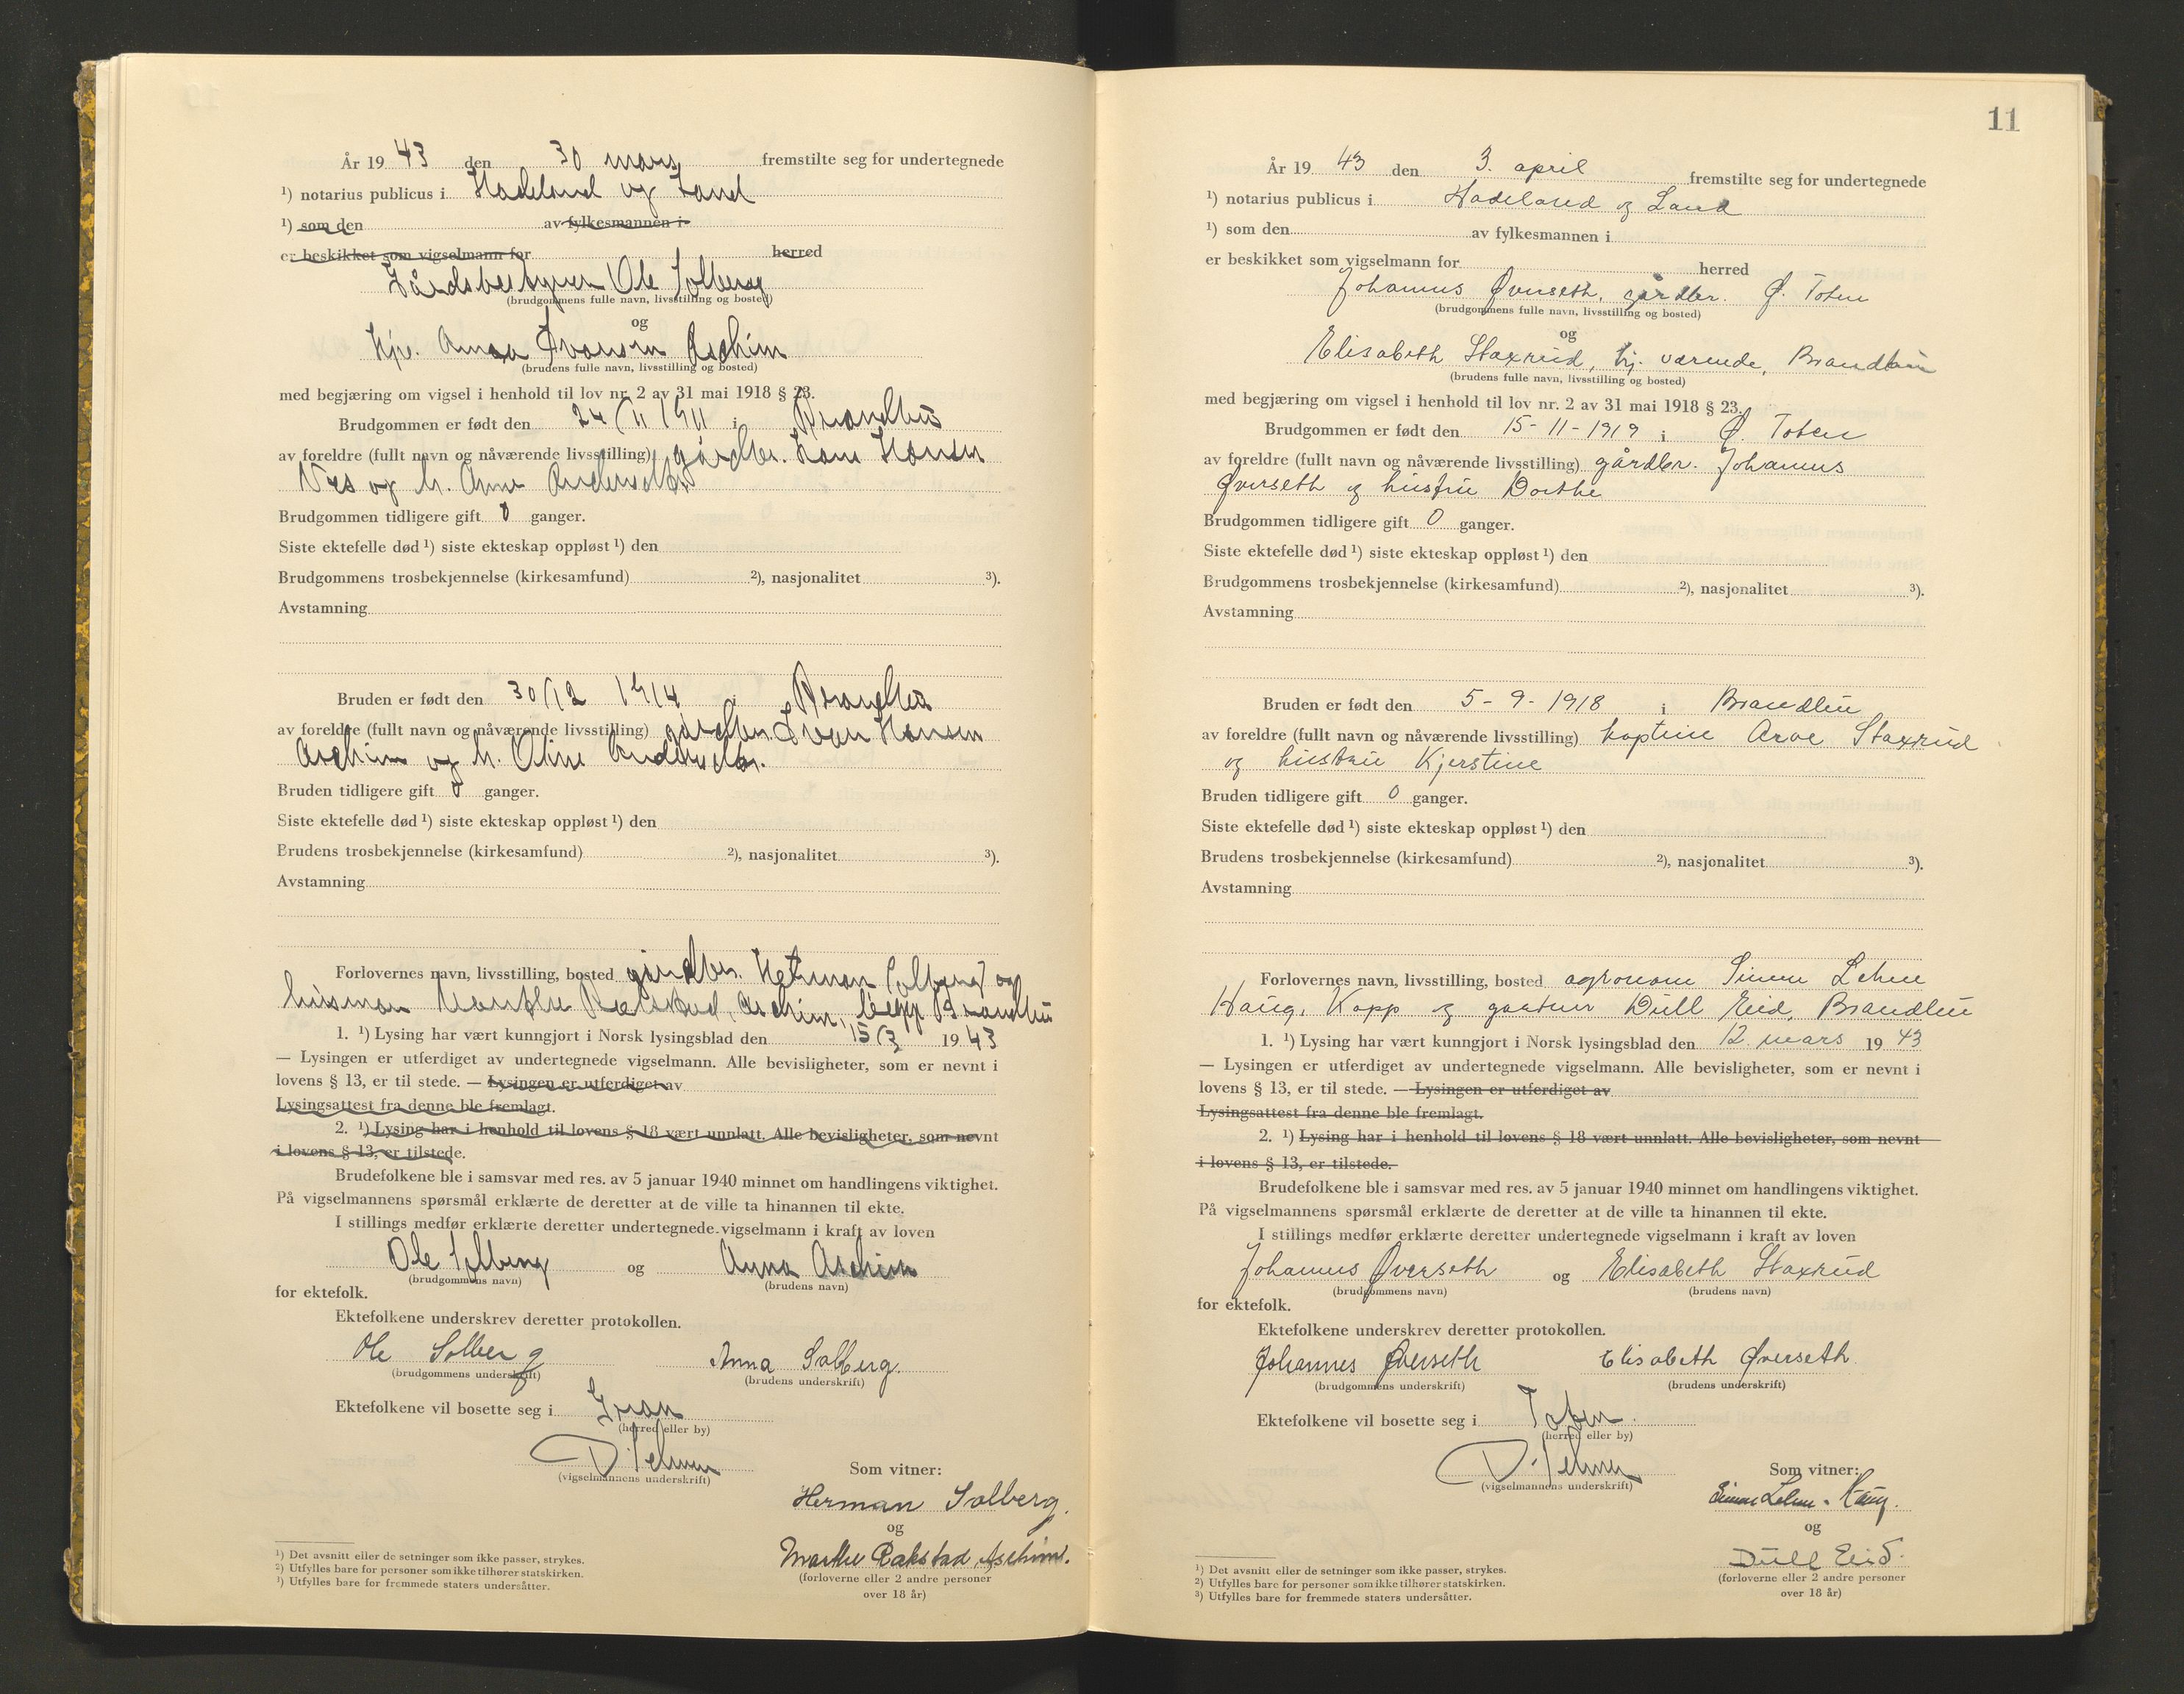 År 19 43 den 30 mars fremstilte seg for undertegnede
¹) notarius publicus i Hadeland og Land
¹) som den av fylkesmannen i
er beskikket som vigselmann for herred
Gårdsbestyrer Ole Solberg
(brudgommens fulle navn, livsstilling og bosted)
og
Hjv. Anna Iversen Aschim
(brudens fulle navn, livsstilling og bosted)
med begjæring om vigsel i henhold til lov nr. 2 av 31 mai 1918 § 23.
Brudgommen er født den 24/11 1911 i Brandbu
av foreldre (fullt navn og nåværende livsstilling) gårdbr. Hans Hansen
og h. Anne Andersdtr.
Brudgommen tidligere gift 0 ganger.
Siste ektefelle død ¹) siste ekteskap oppløst ¹) den
Brudgommens trosbekjennelse (kirkesamfund) ²), nasjonalitet ³).
Avstamning
Bruden er født den 30/12 1914 i Brandbu
av foreldre (fullt navn og nåværende livsstilling) gårdbr. Iver Hansen
Aschim og h. Oline Andersdtr.
Bruden tidligere gift 0 ganger.
Siste ektefelle død ¹) siste ekteskap oppløst ¹) den
Brudens trosbekjennelse (kirkesamfund) ²), nasjonalitet ³).
Avstamning
Forlovernes navn, livsstilling, bosted gårdbr. Herman Solberg og
Marthe Rækstad Aschim, begge Brandbu
1. ¹) Lysing har vært kunngjort i Norsk lysingsblad den 15/3 19 43
— Lysingen er utferdiget av undertegnede vigselmann. Alle bevisligheter, som er nevnt i
lovens § 13, er til stede. — Lysingen er utferdiget av
Lysingsattest fra denne ble fremlagt.
2. ¹) Lysing har i henhold til lovens § 18 vært unnlatt. Alle bevisligheter, som nevnt
i lovens § 13, er tilstede.
Brudefolkene ble i samsvar med res. av 5 januar 1940 minnet om handlingens viktighet.
På vigselmannens spørsmål erklærte de deretter at de ville ta hinannen til ekte.
I stillings medfør erklærte deretter undertegnede vigselmann i kraft av loven
Ole Solberg og Anna Aschim
(brudgommens navn) (brudens navn)
for ektefolk.
Ektefolkene underskrev deretter protokollen.
Ole Solberg Anna Solberg.
(brudgommens underskrift) (brudens underskrift)
Ektefolkene vil bosette seg i Gran
(herred eller by)
(vigselmannens underskrift)
Som vitner:
Herman Solberg.
og
Marthe Rækstad Aschim.
(forloverne eller 2 andre personer
over 18 år)
¹) Det avsnitt eller de setninger som ikke passer, strykes.
²) Utfylles bare for personer som ikke tilhører statskirken.
³) Utfylles bare for fremmede staters undersåtter.
11
År 19 43 den 3. april fremstilte seg for undertegnede
¹) notarius publicus i Hadeland og Land
¹) som den av fylkesmannen i
er beskikket som vigselmann for herred
Johannes Øverseth, gårdbr. Ø. Toten
(brudgommens fulle navn, livsstilling og bosted)
og
Elisabeth Staxrud, hj. værende, Brandbu
(brudens fulle navn, livsstilling og bosted)
med begjæring om vigsel i henhold til lov nr. 2 av 31 mai 1918 § 23.
Brudgommen er født den 15-11-1919 i Ø. Toten
av foreldre (fullt navn og nåværende livsstilling) gårdbr. Johannes
Øverseth og hustru Dorthe
Brudgommen tidligere gift 0 ganger.
Siste ektefelle død ¹) siste ekteskap oppløst ¹) den
Brudgommens trosbekjennelse (kirkesamfund) ²), nasjonalitet ³).
Avstamning
Bruden er født den 5-9-1918 i Brandbu
av foreldre (fullt navn og nåværende livsstilling) kaptein Arve Staxrud
og hustru Kjerstine
Bruden tidligere gift 0 ganger.
Siste ektefelle død ¹) siste ekteskap oppløst ¹) den
Brudens trosbekjennelse (kirkesamfund) ²), nasjonalitet ³).
Avstamning
Forlovernes navn, livsstilling, bosted agronom Simen Lehne
Haug, Kapp og gartner Düll Eid, Brandbu
1. ¹) Lysing har vært kunngjort i Norsk lysingsblad den 12. mars 19 43
— Lysingen er utferdiget av undertegnede vigselmann. Alle bevisligheter, som er nevnt i
lovens § 13, er til stede. — Lysingen er utferdiget av
Lysingsattest fra denne ble fremlagt.
2. ¹) Lysing har i henhold til lovens § 18 vært unnlatt. Alle bevisligheter, som nevnt
i lovens § 13, er tilstede.
Brudefolkene ble i samsvar med res. av 5 januar 1940 minnet om handlingens viktighet.
På vigselmannens spørsmål erklærte de deretter at de ville ta hinannen til ekte.
I stillings medfør erklærte deretter undertegnede vigselmann i kraft av loven
Johannes Øverseth og Elisabeth Staxrud
(brudgommens navn) (brudens navn)
for ektefolk.
Ektefolkene underskrev deretter protokollen.
Johannes Øverseth Elisabeth Øverseth
(brudgommens underskrift) (brudens underskrift)
Ektefolkene vil bosette seg i Toten.
(herred eller by)
(vigselmannens underskrift)
Som vitner:
Simen Lehne-Haug.
og
Düll Eid.
(forloverne eller 2 andre personer
over 18 år)
¹) Det avsnitt eller de setninger som ikke passer, strykes.
²) Utfylles bare for personer som ikke tilhører statskirken.
³) Utfylles bare for fremmede staters undersåtter.